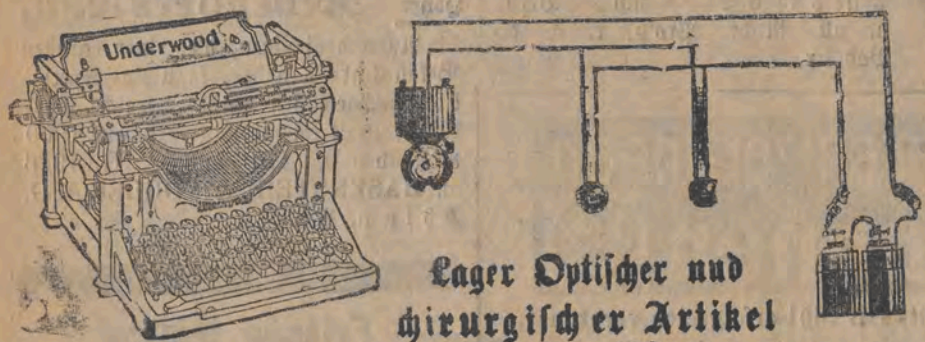 Underwood
Lager Optiſcher nud
chirurgiſch er Artikel